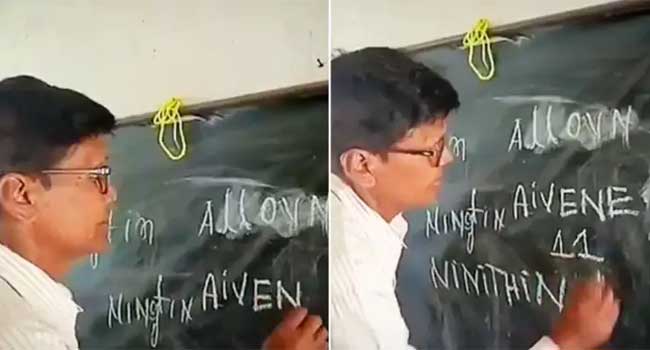 tin ALLOVN
NingtixAiVEN
in ALLOVN
NingtixAiVENE
11
NINITHIN